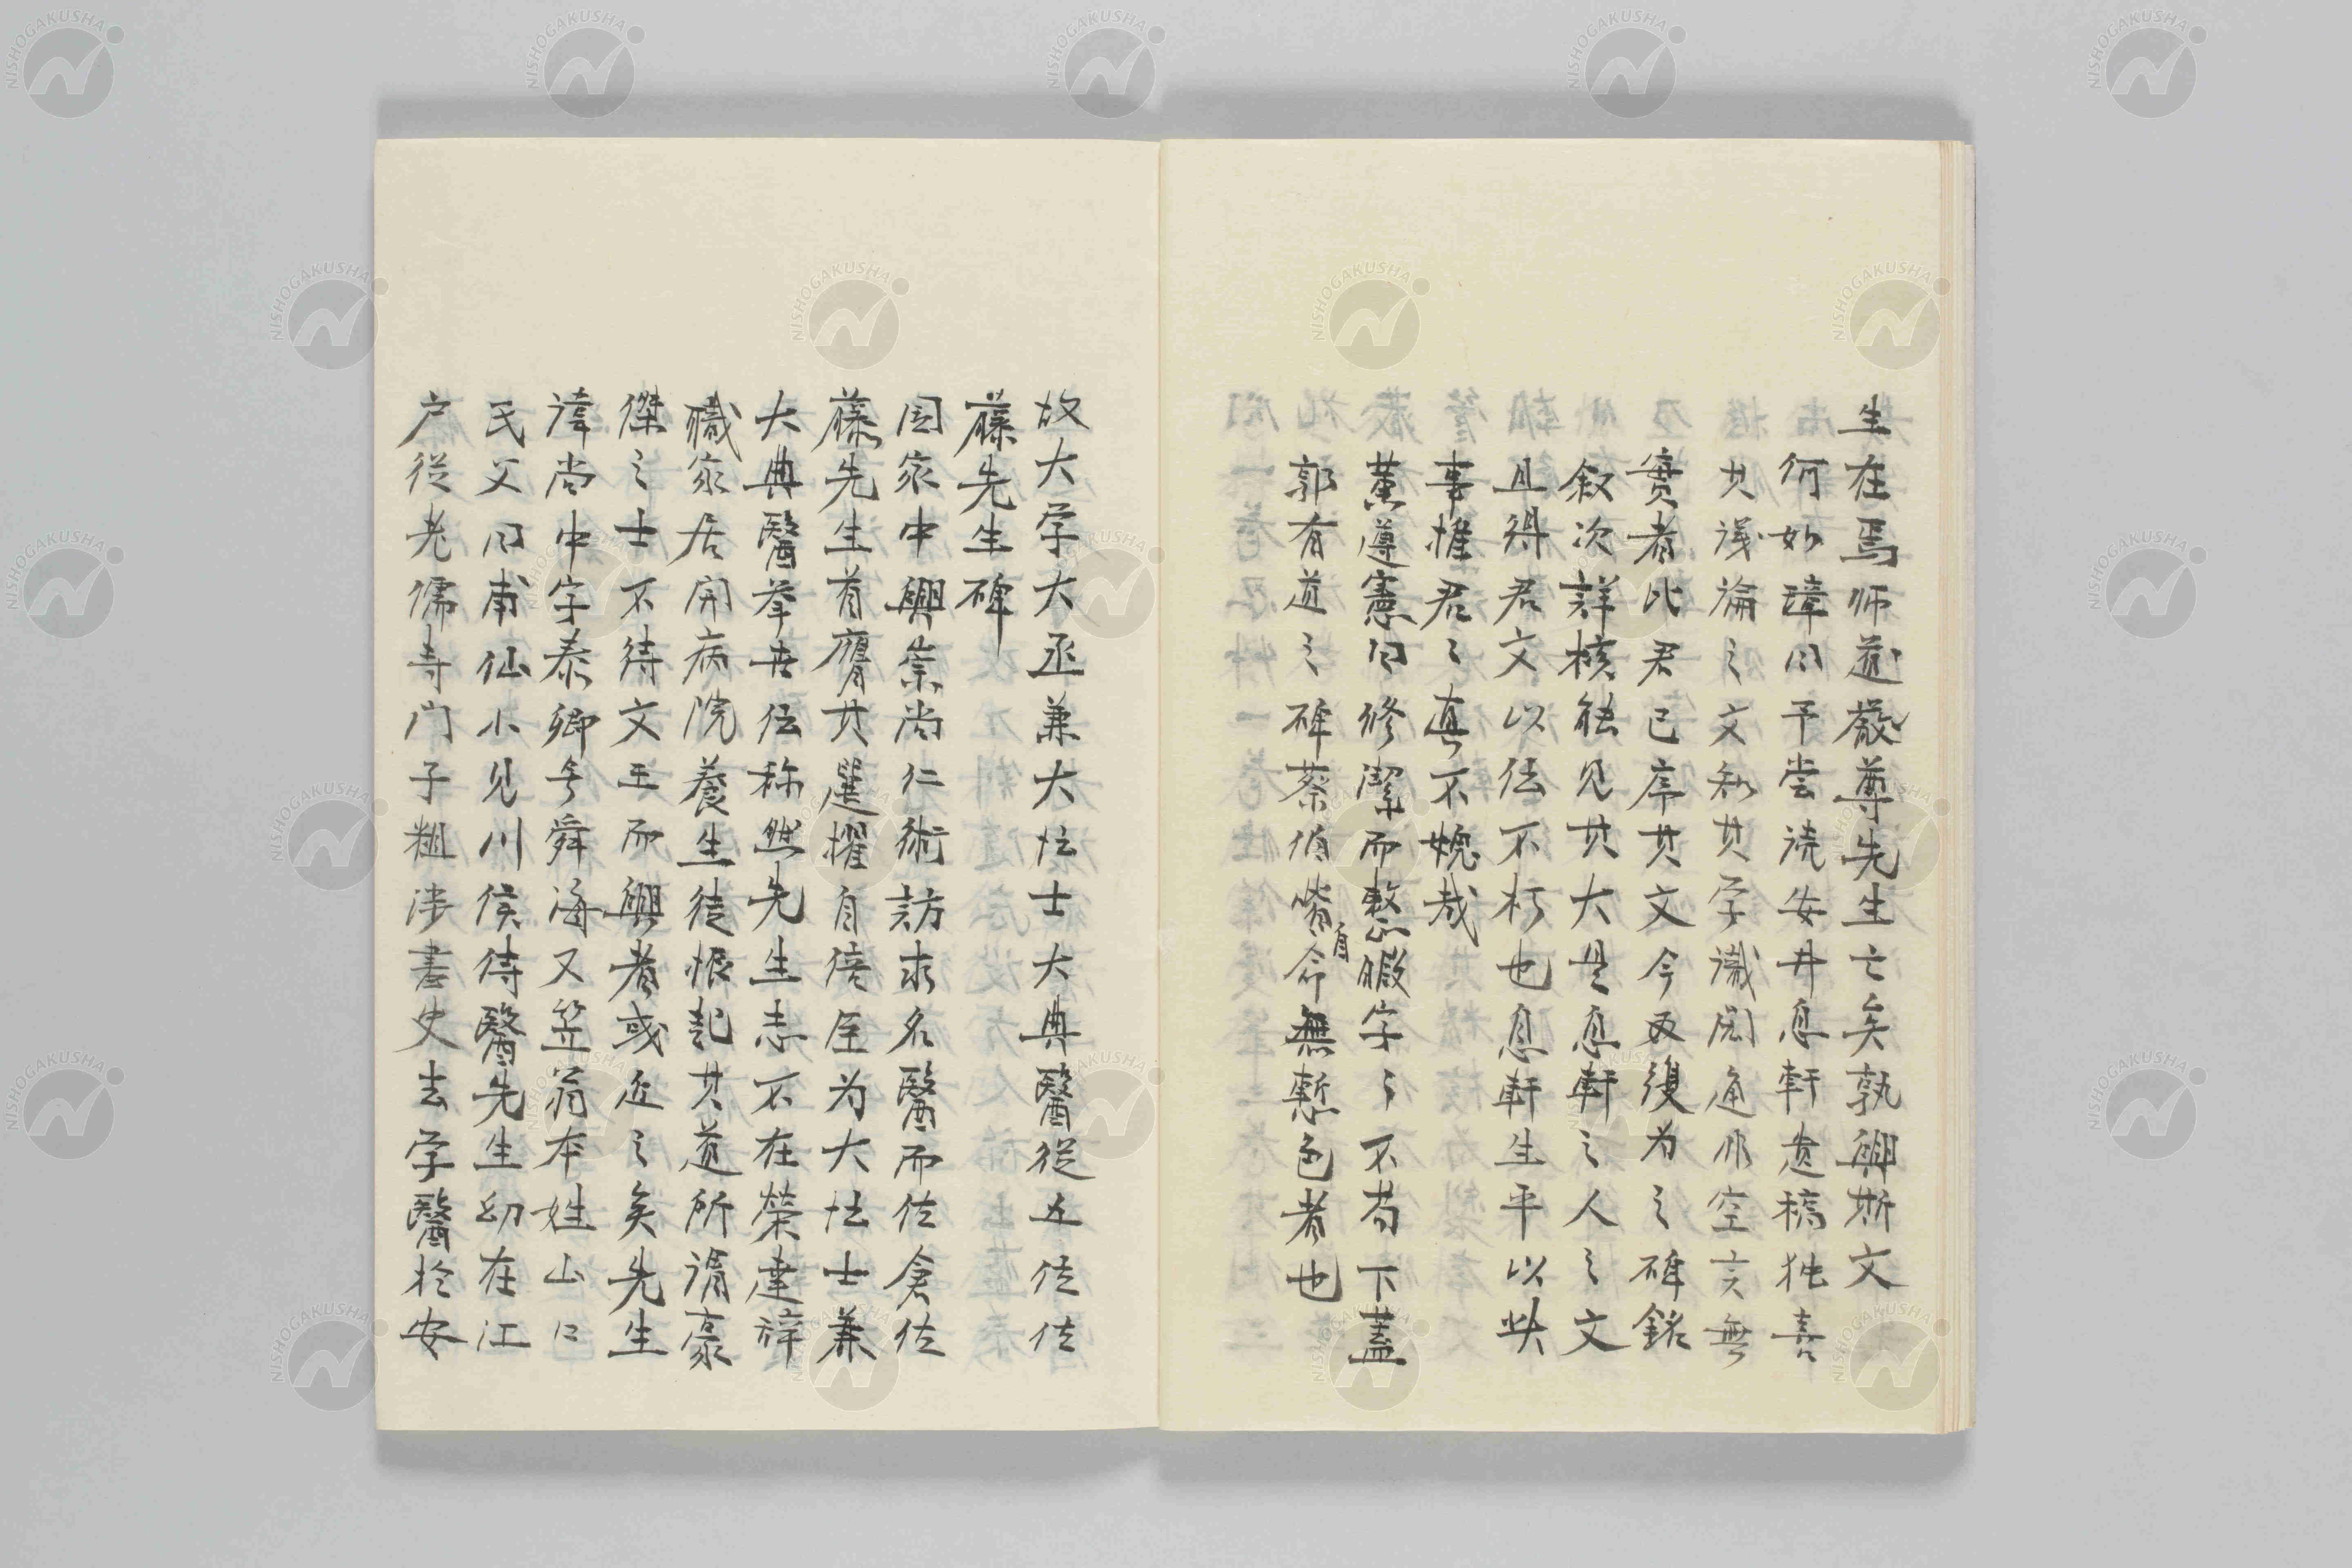 生在焉師道厳尊先生亡矣孰興斯文
何如璋曰予嘗読安井息軒遺稿独喜
其議論之文知其学識閎通非空言無
實者比君已序其文今又復为之碑銘
叙次詳核能见其大是息軒之人之文
且得君文以伝不朽也息軒生平以此
事推君之真不媿哉
黄遵憲曰修潔而整暇字々不苟下蓋
郭有道之碑蔡伯喈自命無慙色者也
故大学大丞兼大博士大典醫従五位佐
藤先生碑
国家中興崇尚仁術訪求名醫而佐倉佐
藤先生首膺其選擢自陪臣为大博士兼
大典醫挙世伝称然先生志不在榮達辞
職家居开病院養生徒恢起其道所謂豪
傑之士不待文王而興者或近之矣先生
諱尚中字泰卿号舜海又笠翁本姓山口
氏父曰甫仙小见川侯侍醫先生幼在江
户従老儒寺门子粗渉書史去学醫於安
NISHOGAKUSHA